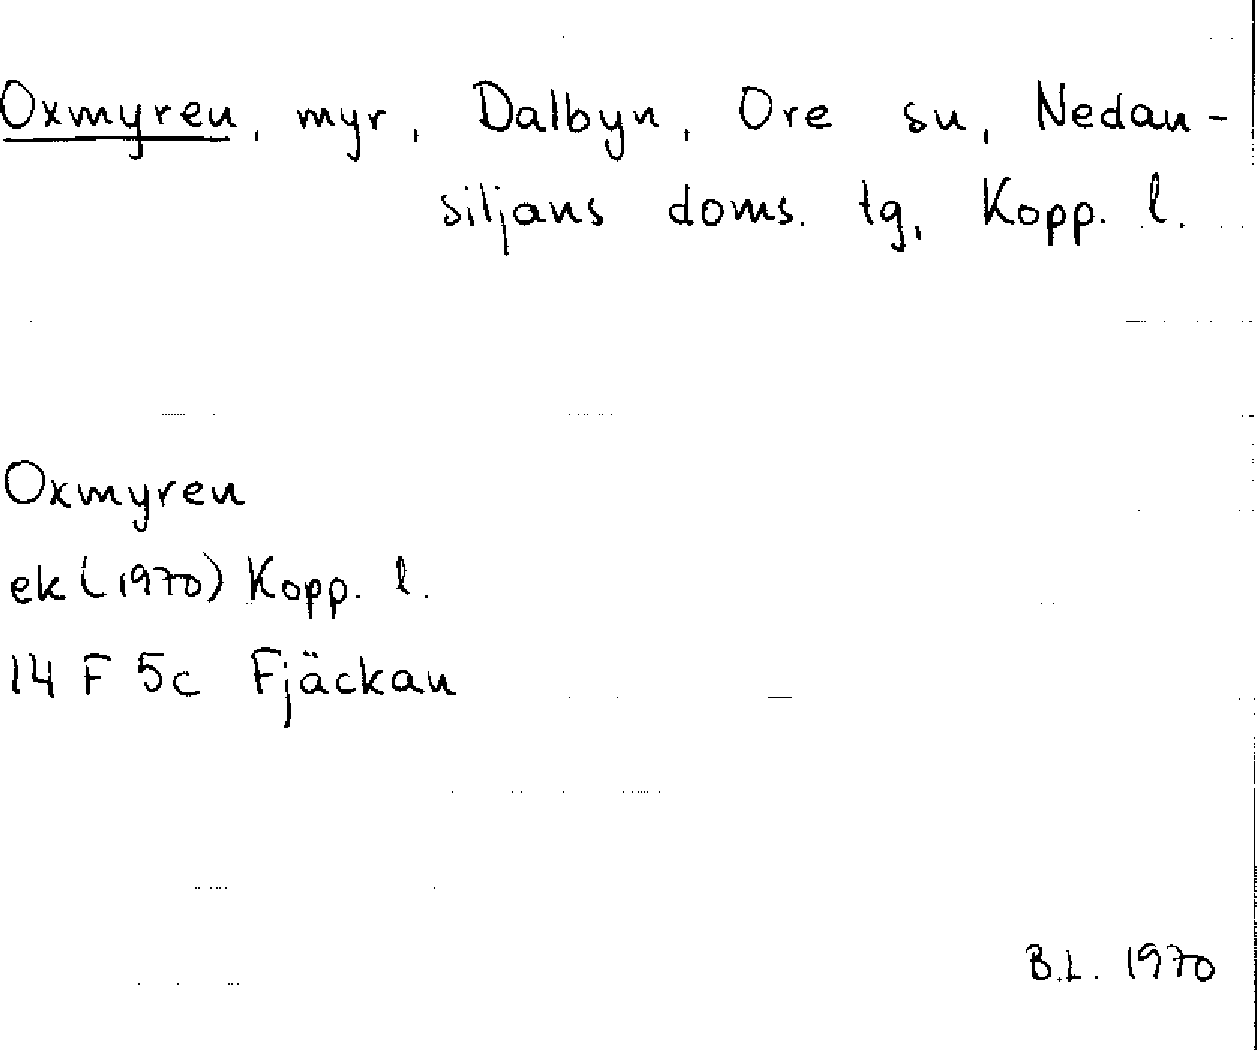 Oxmyren, myr, Dalbyn, Ore sn, Nedan-
siljans doms. tg, Kopp. l.
Oxmyren
ek (1970) Kopp. l.
14 F 5c Fjäckan
B.L. 1970